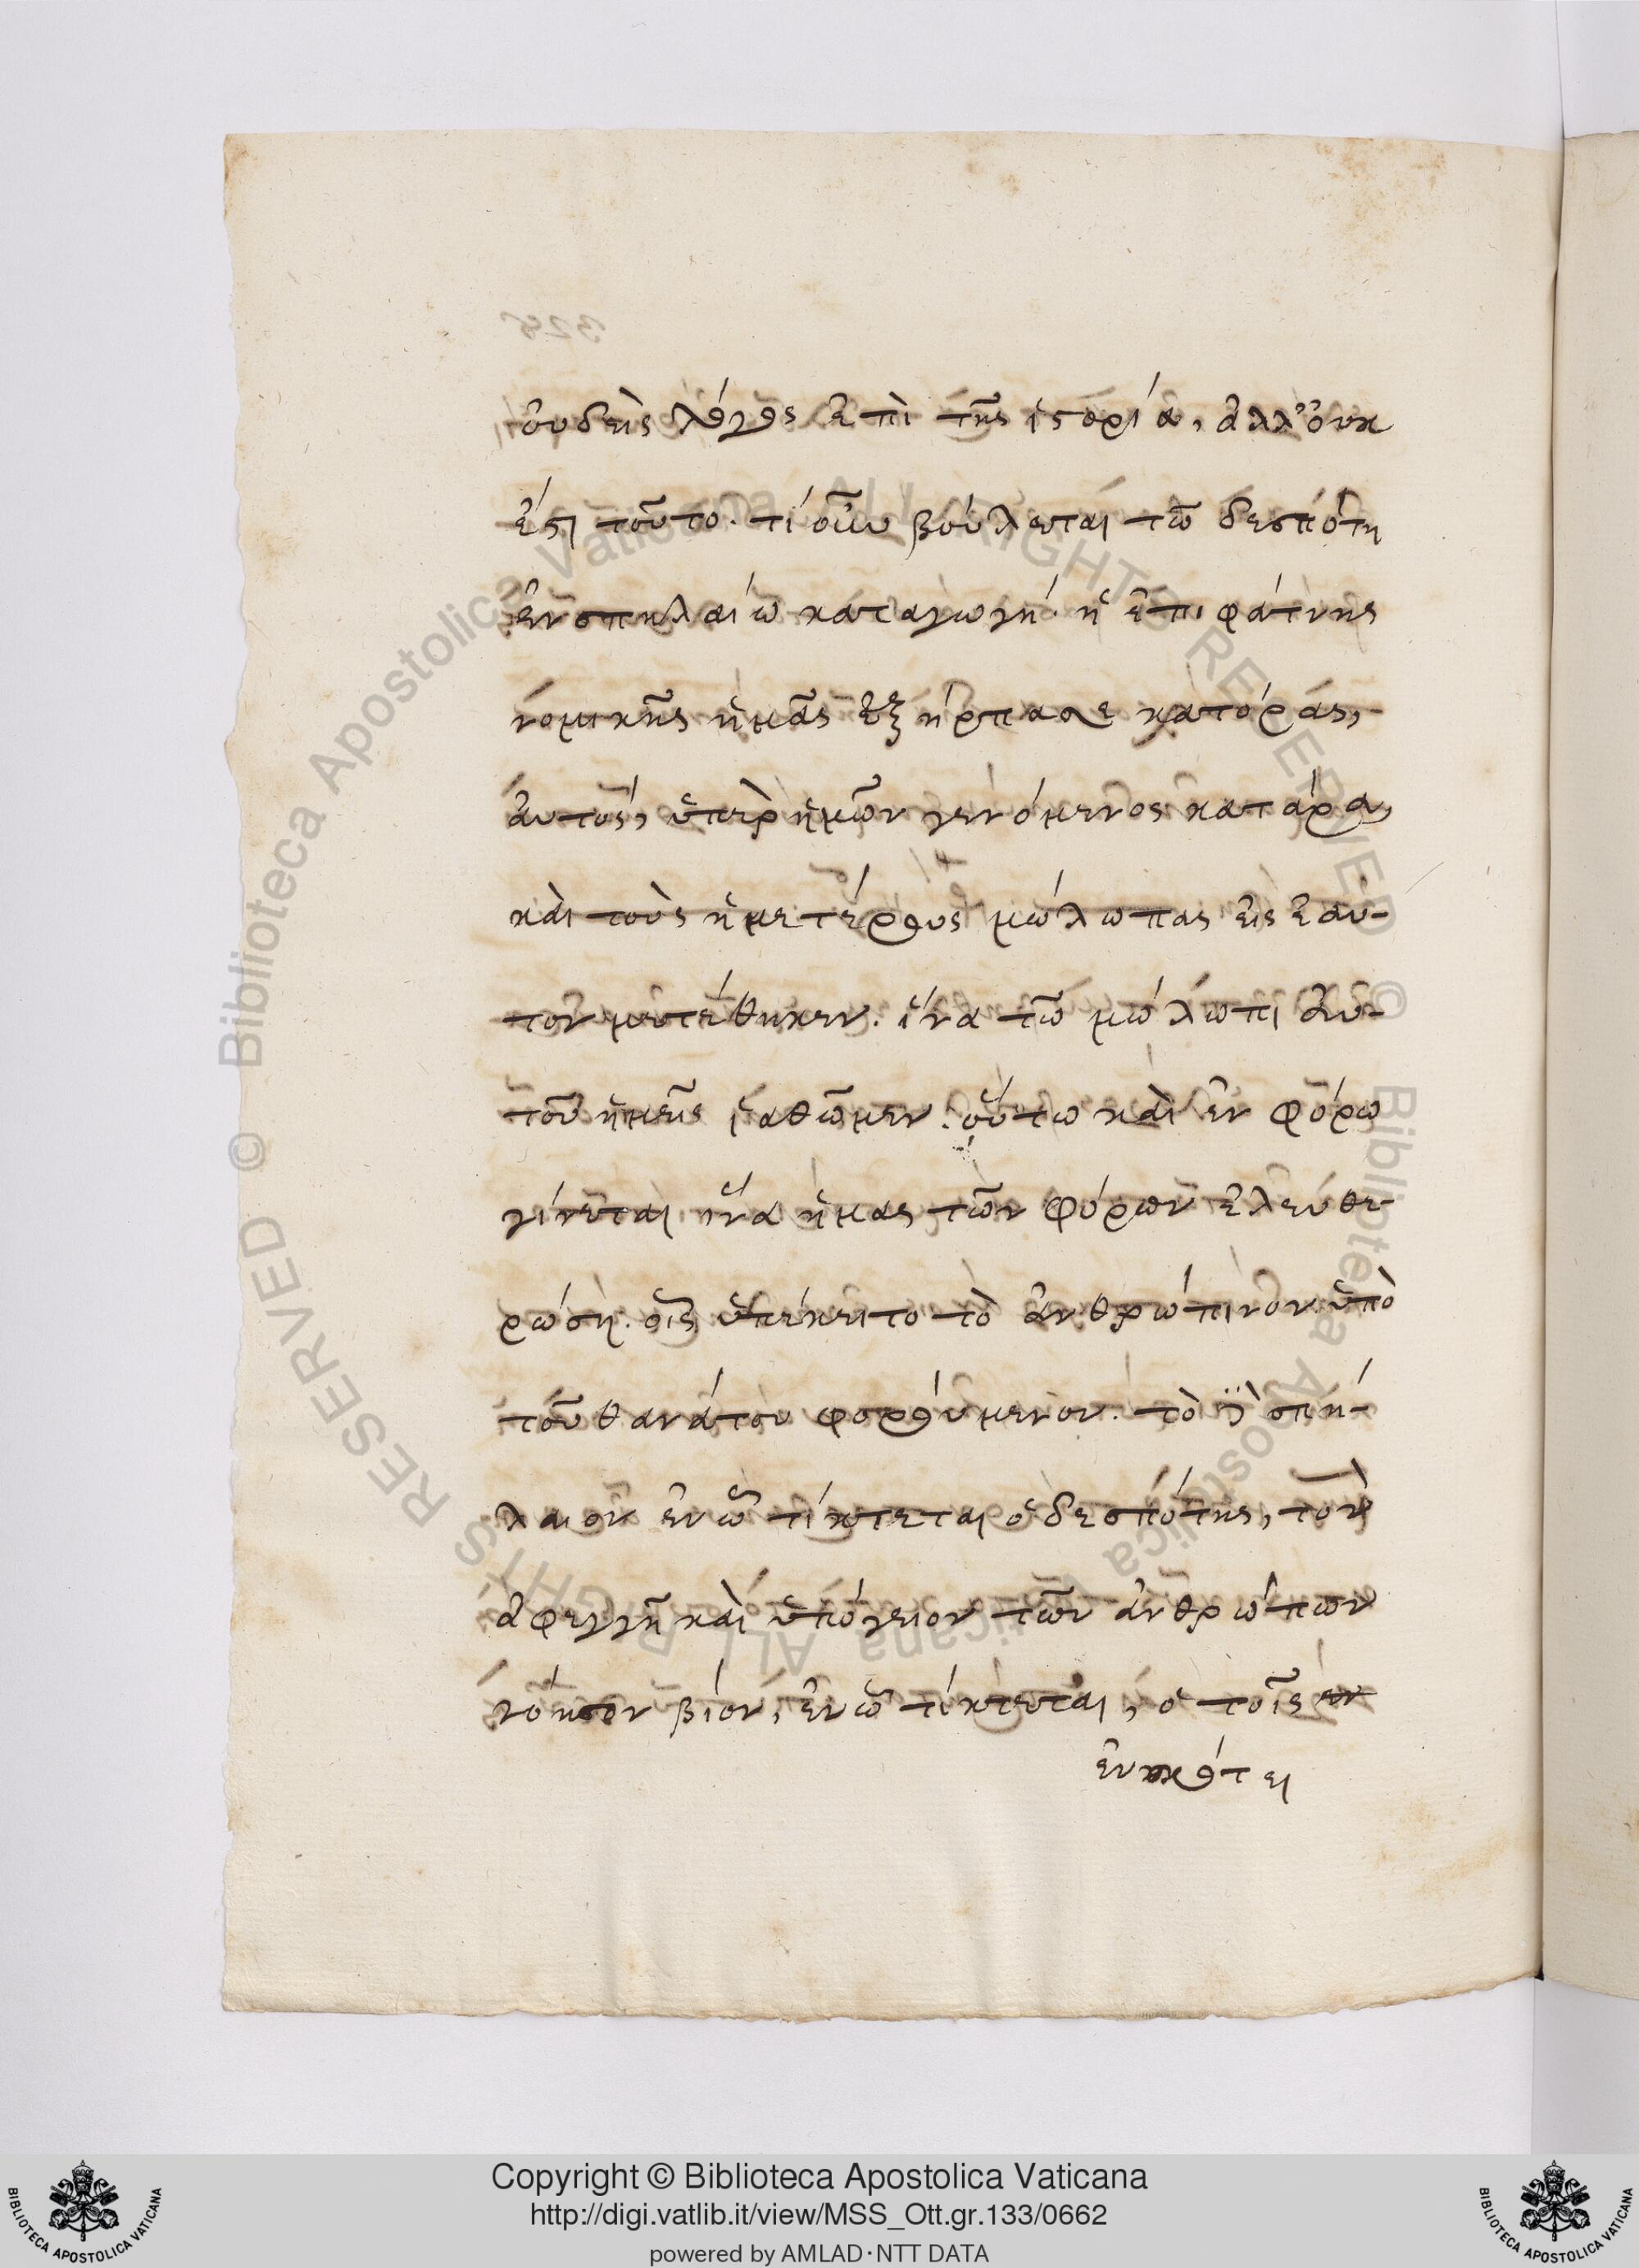 οὐδεὶς λόγος ἐπὶ τῆς ἱστορία, ἀλλ' οὐκ
ἔστι τοῦτο. τί οὖν βούλεται τῶ δεσπότη
ἐν σπηλαίω καταγωγή· ἡ ἐπι φάτνης
νομικῆς ἡμᾶς ἐξήρπασε κατάρας,
αὐτὸς, ὑπὲρ ἡμῶν γενόμενος κατάρα,
καὶ τοὺς ἡμετέρους μώλωπας εἰς ἑαυ-
τον μετέθηκεν. ἵνα τῶ μώλωπι αὐ-
τοῦ ἡμεῖς ἰαθῶμεν. οὕτω καὶ ἐν φόρω
γίνεται ἵνα ἡμας τῶν φόρων ἐλευθε-
ρώση. οἷς ὑπέκειτο τὸ ἀνθρώπινον ὑπὸ
τοῦ θανάτου φορούμενον. τὸ δὲ σπή-
λαιον ἐν ὧ τίκτεται ὁ δεσπότης, τὸν
ἀφεγγῆ καὶ ὑπόγειον τῶν ἀνθρώπων
νόησον βίον, ἐν ὧ τίκτεται, ὁ τοῖς
ἐν σκότει
Copyright © Biblioteca Apostolica Vaticana
http://digi.vatlib.it/view/MSS_Ott.gr.133/0662
powered by AMLAD·NTT DATA
BIBLIOTECA APOSTOLICA VATICANA
BIBLIOTECA APOSTOLICA VATICANA
© Biblioteca Apostolica Vaticana ALL RIGHTS RESERVED
© Biblioteca Apostolica Vaticana ALL RIGHTS RESERVED